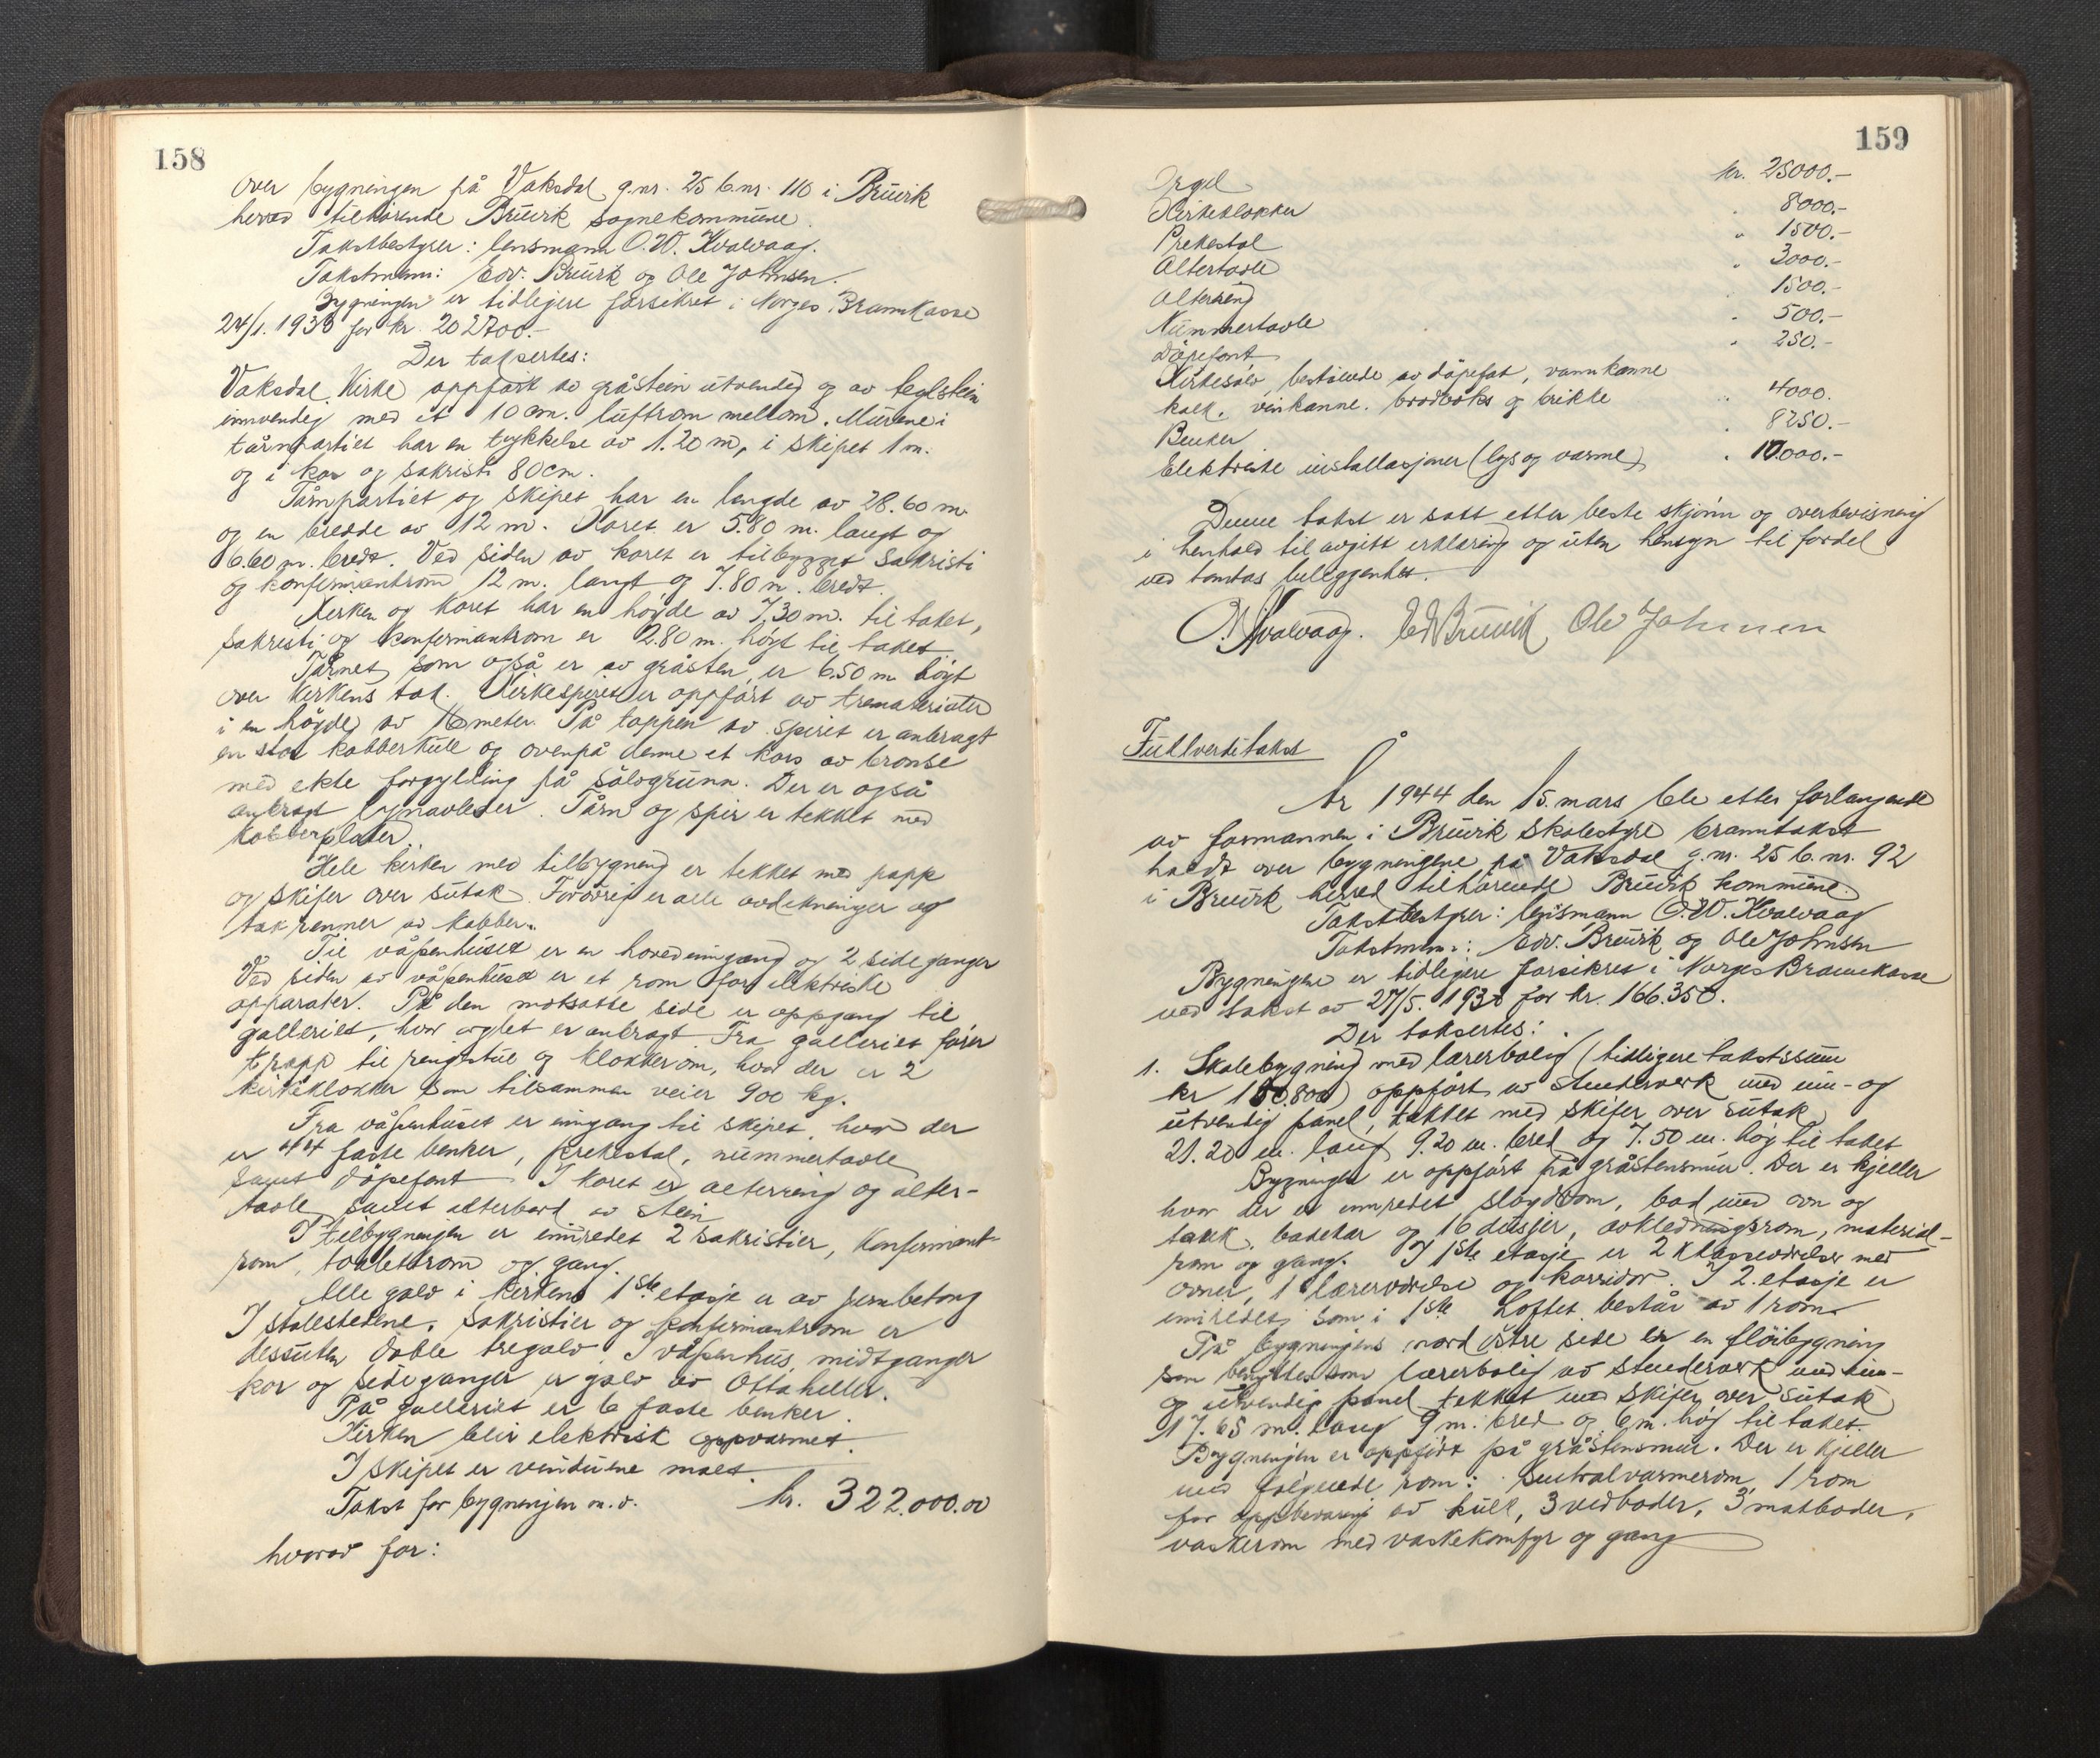 158
over bygningen på Vaksdal g.nr. 25 b.nr. 110 i Bruvik
herred tilhørende Bruvik sognekommune.
Takstbestyrer: lensmann O.W. Kvalvaag.
Takstmenn: Edv. Bruvik og Ole Johnsen.
Bygningen er tidligere forsikret i Norges Brannkasse
24/1. 1933 for kr. 202700.-
Der taksertes:
Vaksdal Kirke oppført av gråstein utvendig og av teglstein
innvendig med et 10 cm. luftrom mellom. Murene i
tårnpartiet har en tykkelse av 1.20 m, i skipet 1 m.
og i kor og sakristi 80 cm.
Tårnpartiet og skipet har en lengde av 28.60 m.
og en bredde av 12 m. Koret er 5.80 m. langt og
6.60 m. bredt. Ved siden av koret er tilbygget sakristi
og konfirmantrom 12 m. langt og 7.80 m. bredt.
Kirken og koret har en høyde av 7,30 m. til taket,
sakristi og konfirmantrom er 2.80 m. høgt til taket.
Tårnet som også er av gråsten, er 6.50 m høgt
over kirkens tak. Kirkespiret er oppført av trematerialer
i en høgde av meter. På toppen av spiret er anbragt
en stor kobberkule og ovenpå denne et kors av bronse
med ekte forgylling på sölvgrunn. Der er også
anbragt lynavleder. Tårn og spir er tekket med
kobberplater.
Hele kirken med tilbygning er tekket med papp
og skifer over sutak. Forövrig er alle avdekninger og
takrenner av kobber.
Til våpenhuset er en hovedinngang og 2 sideganger
Ved siden av våpenhuset er et rom for elektriske
apparater. På den motsatte side er oppgang til
galleriet, hvor orglet er anbragt. Fra galleriet förer
trapp til ringestue og klokkerom, hvor der er 2
kirkeklokker som tilsammen veier 900 kg.
Fra våpenhuset er inngang til skipet, hvor der
er 44 faste benker, prekestol, nummertavle
samt döpefont. I koret er alterring og alter-
tavle samt alterbord av stein
I tilbygningen er innredet 2 sakristier, konfirmant-
rom, toalettrom og gang.
Alle golv i kirkens 1ste etasje er av jernbetong
I stolestedene, sakristier og konfirmantrom er
dessuten doble tregolv. I våpenhus, midtganger
kor og sideganger er golv av Ottaheller.
På galleriet er 6 faste benker.
Kirken blir elektrisk oppvarmet.
I skipet er vinduene malt.
Takst for bygningen m.v. kr. 322.000.00
hvorav for:
159
Orgel kr. 25000.-
Kirkeklokker " 8000.-
Prekestol " 1500.-
Altertavle " 3000.-
Alterring 1500.-
Nummertavle " 500.-
Döpefont " 250.-
Kirkesölv, bestående av döpefat, vannkanne
kalk, vinkanne, brödboks og brikke " 4000.
Benker " 8250.-
Elektriske installasjoner (lys og varme) " 10.000.-
Denne takst er satt etter beste skjönn og overbevisning
i henhold til avgitt erklæring og uten hensyn til fordel
ved tomtas beliggenhet.
O.W. Kvalvaag. Edv Bruvik Ole Johnsen
Fullverditakst
År 1944 den 15. mars ble etter forlangende
av formannen i Bruvik skolestyre branntakst
holdt over bygningene på Vaksdal g.nr. 25 b.nr. 92
i Bruvik herred tilhörende Bruvik kommune.
Takstbestyrer: lensmann O.W. Kvalvaag
Takstmenn: Edv. Bruvik og Ole Johnsen
Bygningene er tidligere forsikret i Norges Brannkasse
ved takst av 27/5. 1930 for kr. 166.350.
Der taksertes:
1. Skolebygning med lærerbolig (tidligere takstsum
kr 150.800) oppfört av stenderverk med inn- og
utvendig panel, tekket med skifer over sutak
21.20 m. lang 9.20 m. bred og 7.50 m. høg til taket
Bygningen er oppfört på gråstensmur. Der er kjeller
hvor der er innredet slöydrom, bad med ovn og
tank, badekar og 16 dusjer, avkledningsrom, material-
rom og gang. I 1ste etasje er 2 klasseværelser med
ovner, 1 lærerværelse og korridor. I 2. etasje er
innredet som i 1ste. Loftet består av 1 rom.
På bygningens nordöstre side er en flöibygning
som benyttes som lærerbolig av stenderverk med inn-
og utvendig panel tekket med skifer over sutak
17.65 m. lang 9 m. bred og 6 m. høg til taket.
Bygningen er oppfört på gråstensmur. Der er kjeller
med fölgende rom: sentralvarmerom, 1 rom
for oppbevaring av kull, 3 vedboder, 3 matboder,
vaskerom med vaskekomfyr og gang